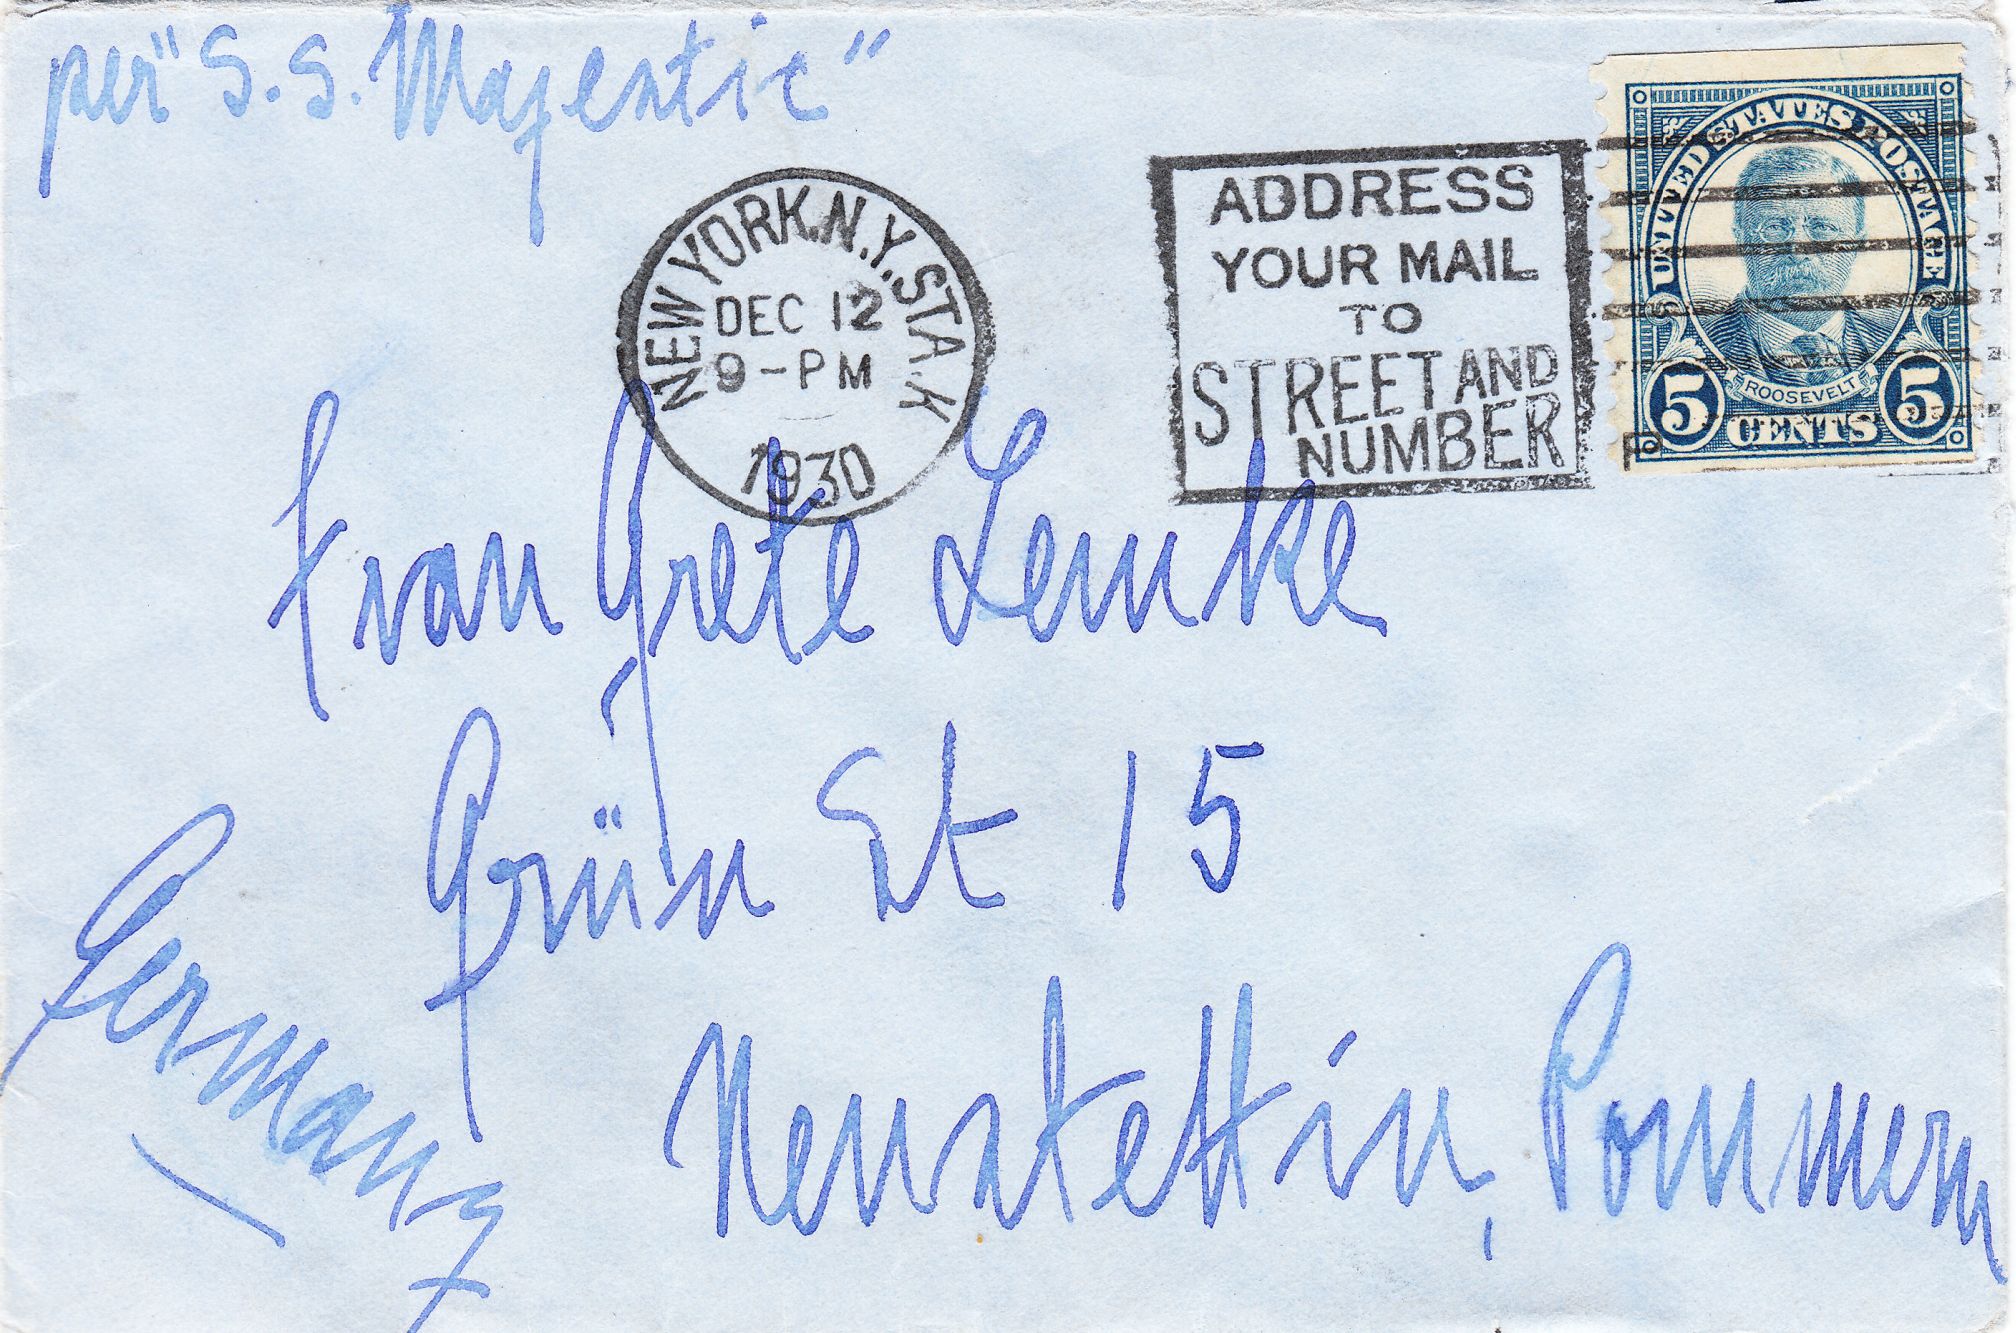 per "S.S. Majestic"
NEW YORK, N.Y. STA. K
DEC 12
9-PM
1930
ADDRESS
YOUR MAIL
TO
STREET AND
NUMBER
UNITED STATES POSTAGE
ROOSEVELT
5 CENTS 5
Frau Grete Lemke
Grün St 15
Neustettin, Pommern
Germany